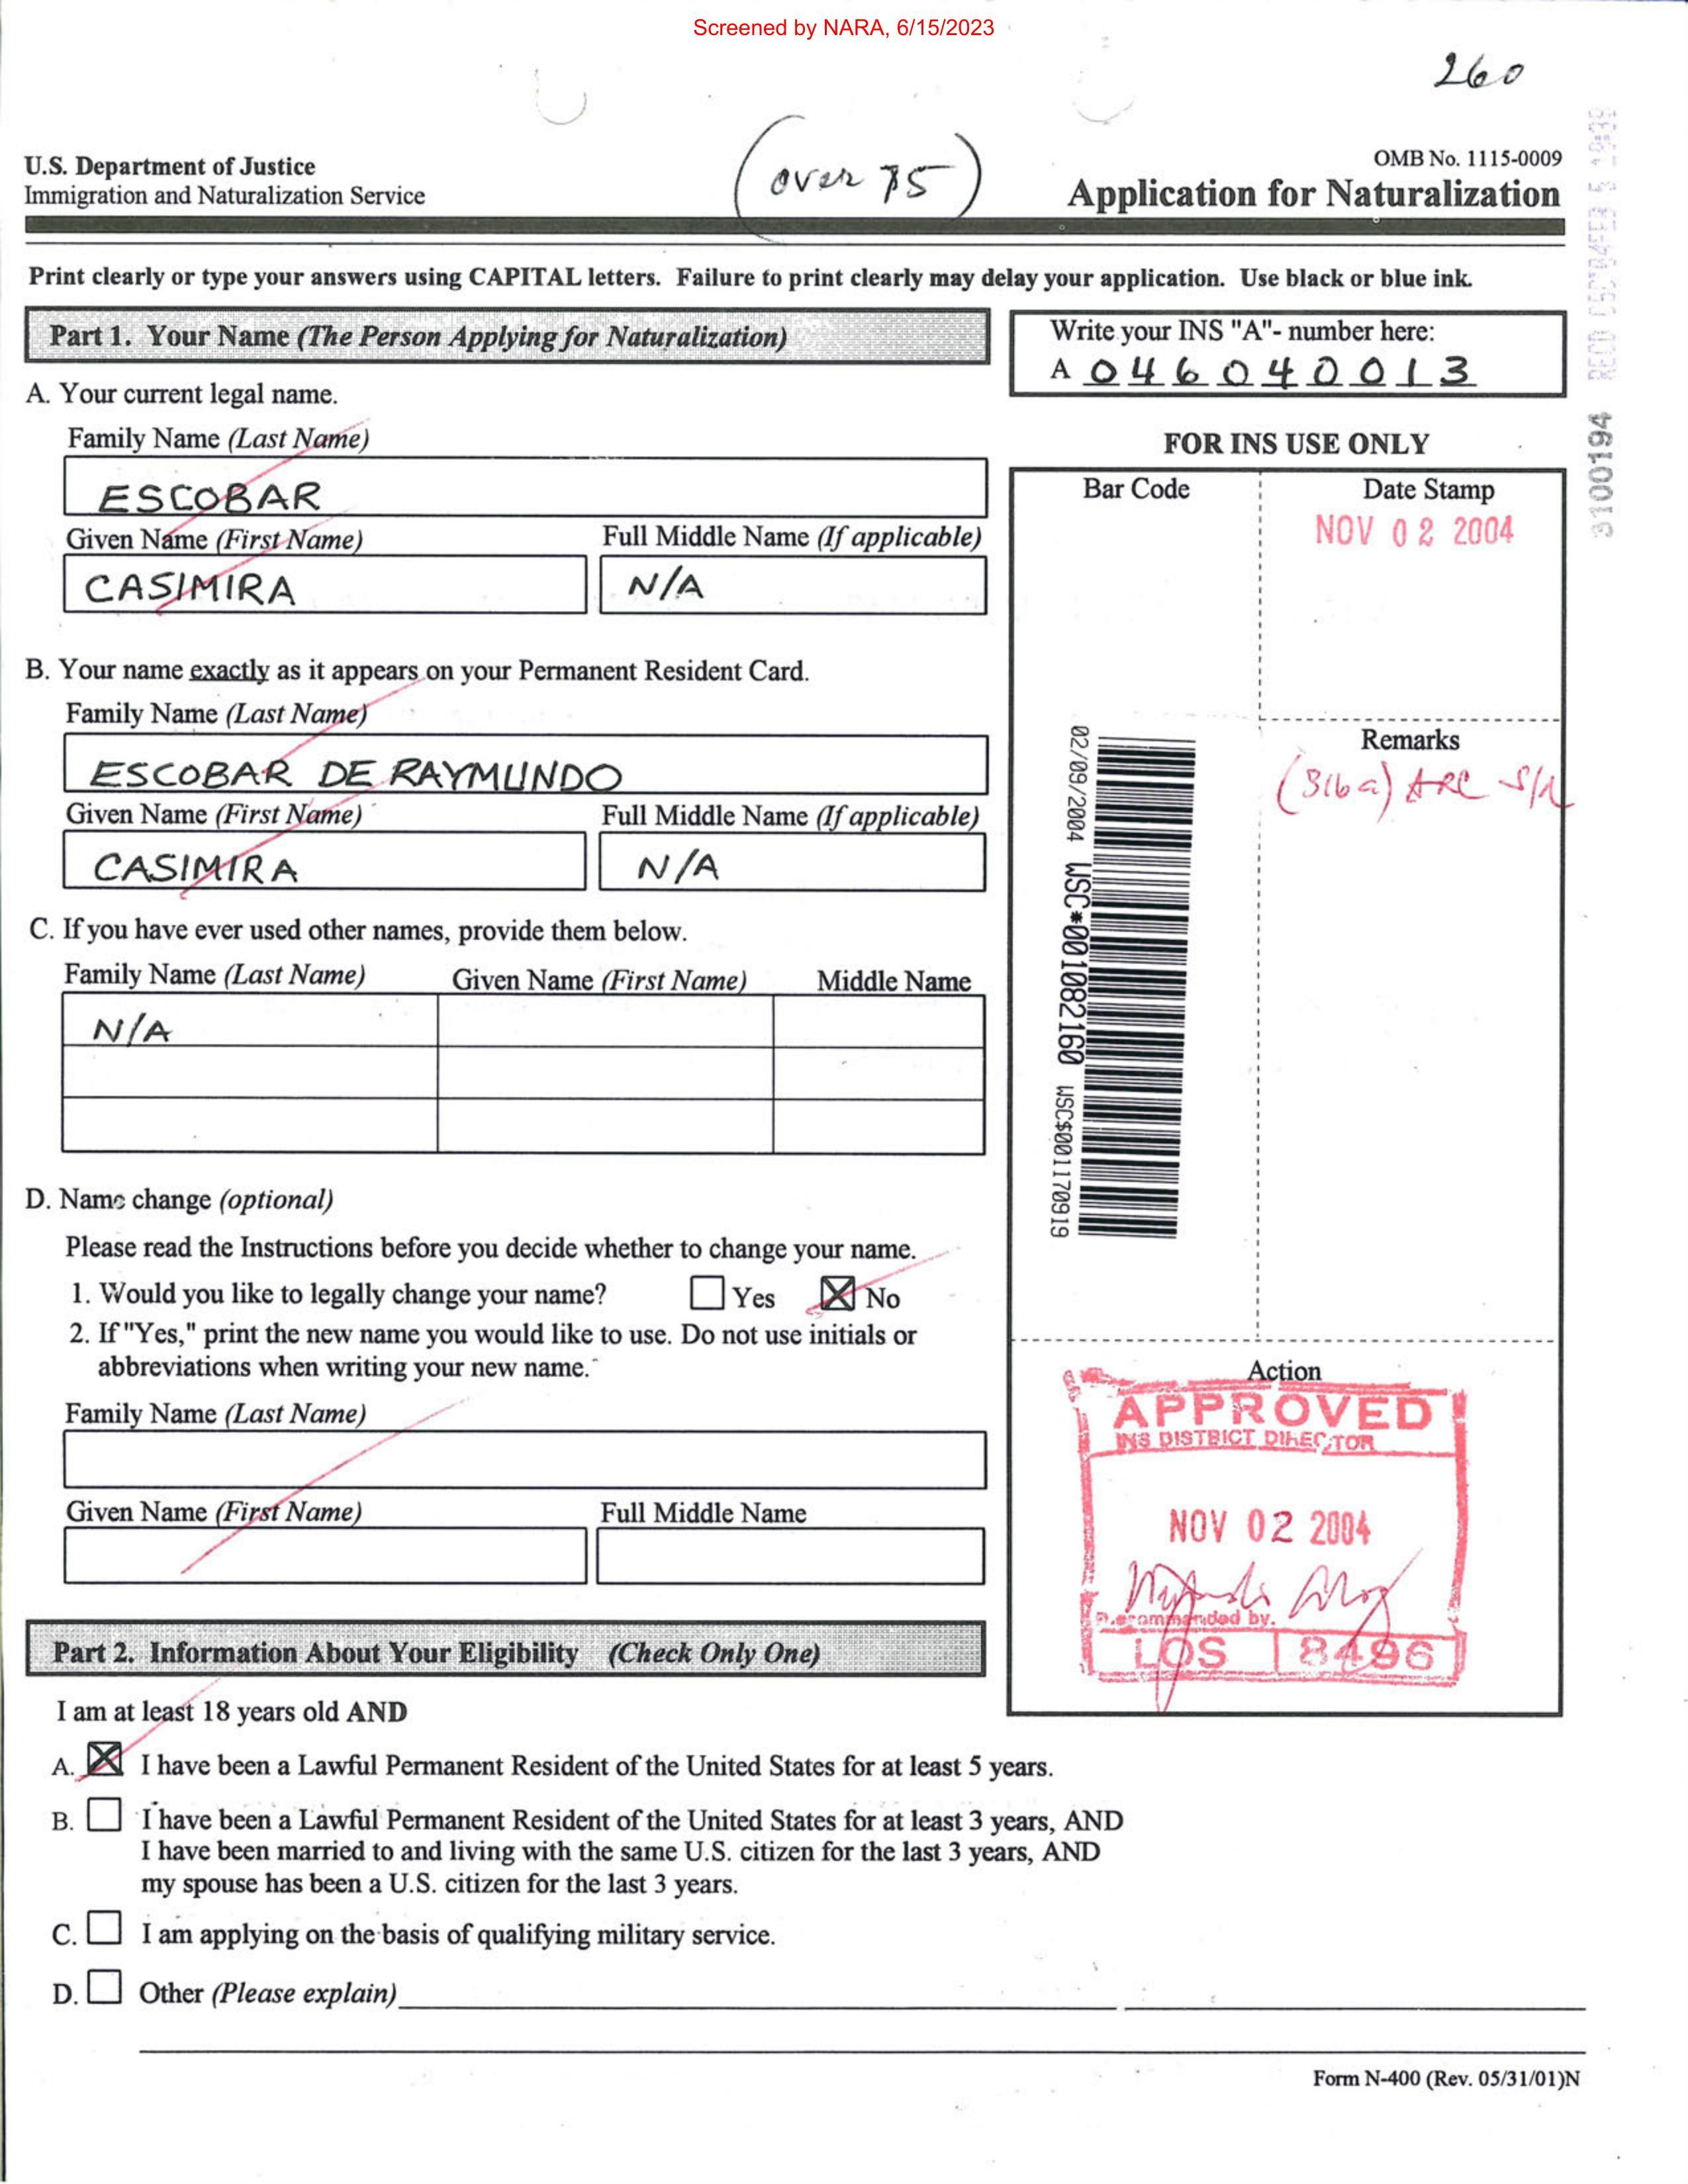 Screened by NARA, 6/15/2023
260
U.S. Department of Justice
Immigration and Naturalization Service
(over 75)
OMB No. 1115-0009
Application for Naturalization
Print clearly or type your answers using CAPITAL letters. Failure to print clearly may delay your application. Use black or blue ink.
Part 1. Your Name (The Person Applying for Naturalization)
Write your INS "A"- number here:
A 046040013
A. Your current legal name.
Family Name (Last Name)
ESCOBAR
Given Name (First Name)
Full Middle Name (If applicable)
CASIMIRA
N/A
B. Your name exactly as it appears on your Permanent Resident Card.
Family Name (Last Name)
ESCOBAR DE RAYMUNDO
Given Name (First Name)
Full Middle Name (If applicable)
CASIMIRA
N/A
C. If you have ever used other names, provide them below.
Family Name (Last Name)
Given Name (First Name)
Middle Name
N/A
D. Name change (optional)
Please read the Instructions before you decide whether to change your name.
1. Would you like to legally change your name?
Yes
No
2. If "Yes," print the new name you would like to use. Do not use initials or
abbreviations when writing your new name.
Family Name (Last Name)
Given Name (First Name)
Full Middle Name
FOR INS USE ONLY
Bar Code
Date Stamp
NOV 02 2004
Remarks
(316a) ARC
02/09/2004 WSC*001082160 WSC$001170919
Action
APPROVED
INS DISTRICT DIRECTOR
NOV 02 2004
Recommended by.
LOS 8496
Part 2. Information About Your Eligibility (Check Only One)
I am at least 18 years old AND
A. I have been a Lawful Permanent Resident of the United States for at least 5 years.
B. I have been a Lawful Permanent Resident of the United States for at least 3 years, AND
I have been married to and living with the same U.S. citizen for the last 3 years, AND
my spouse has been a U.S. citizen for the last 3 years.
C. I am applying on the basis of qualifying military service.
D. Other (Please explain)
Form N-400 (Rev. 05/31/01)N